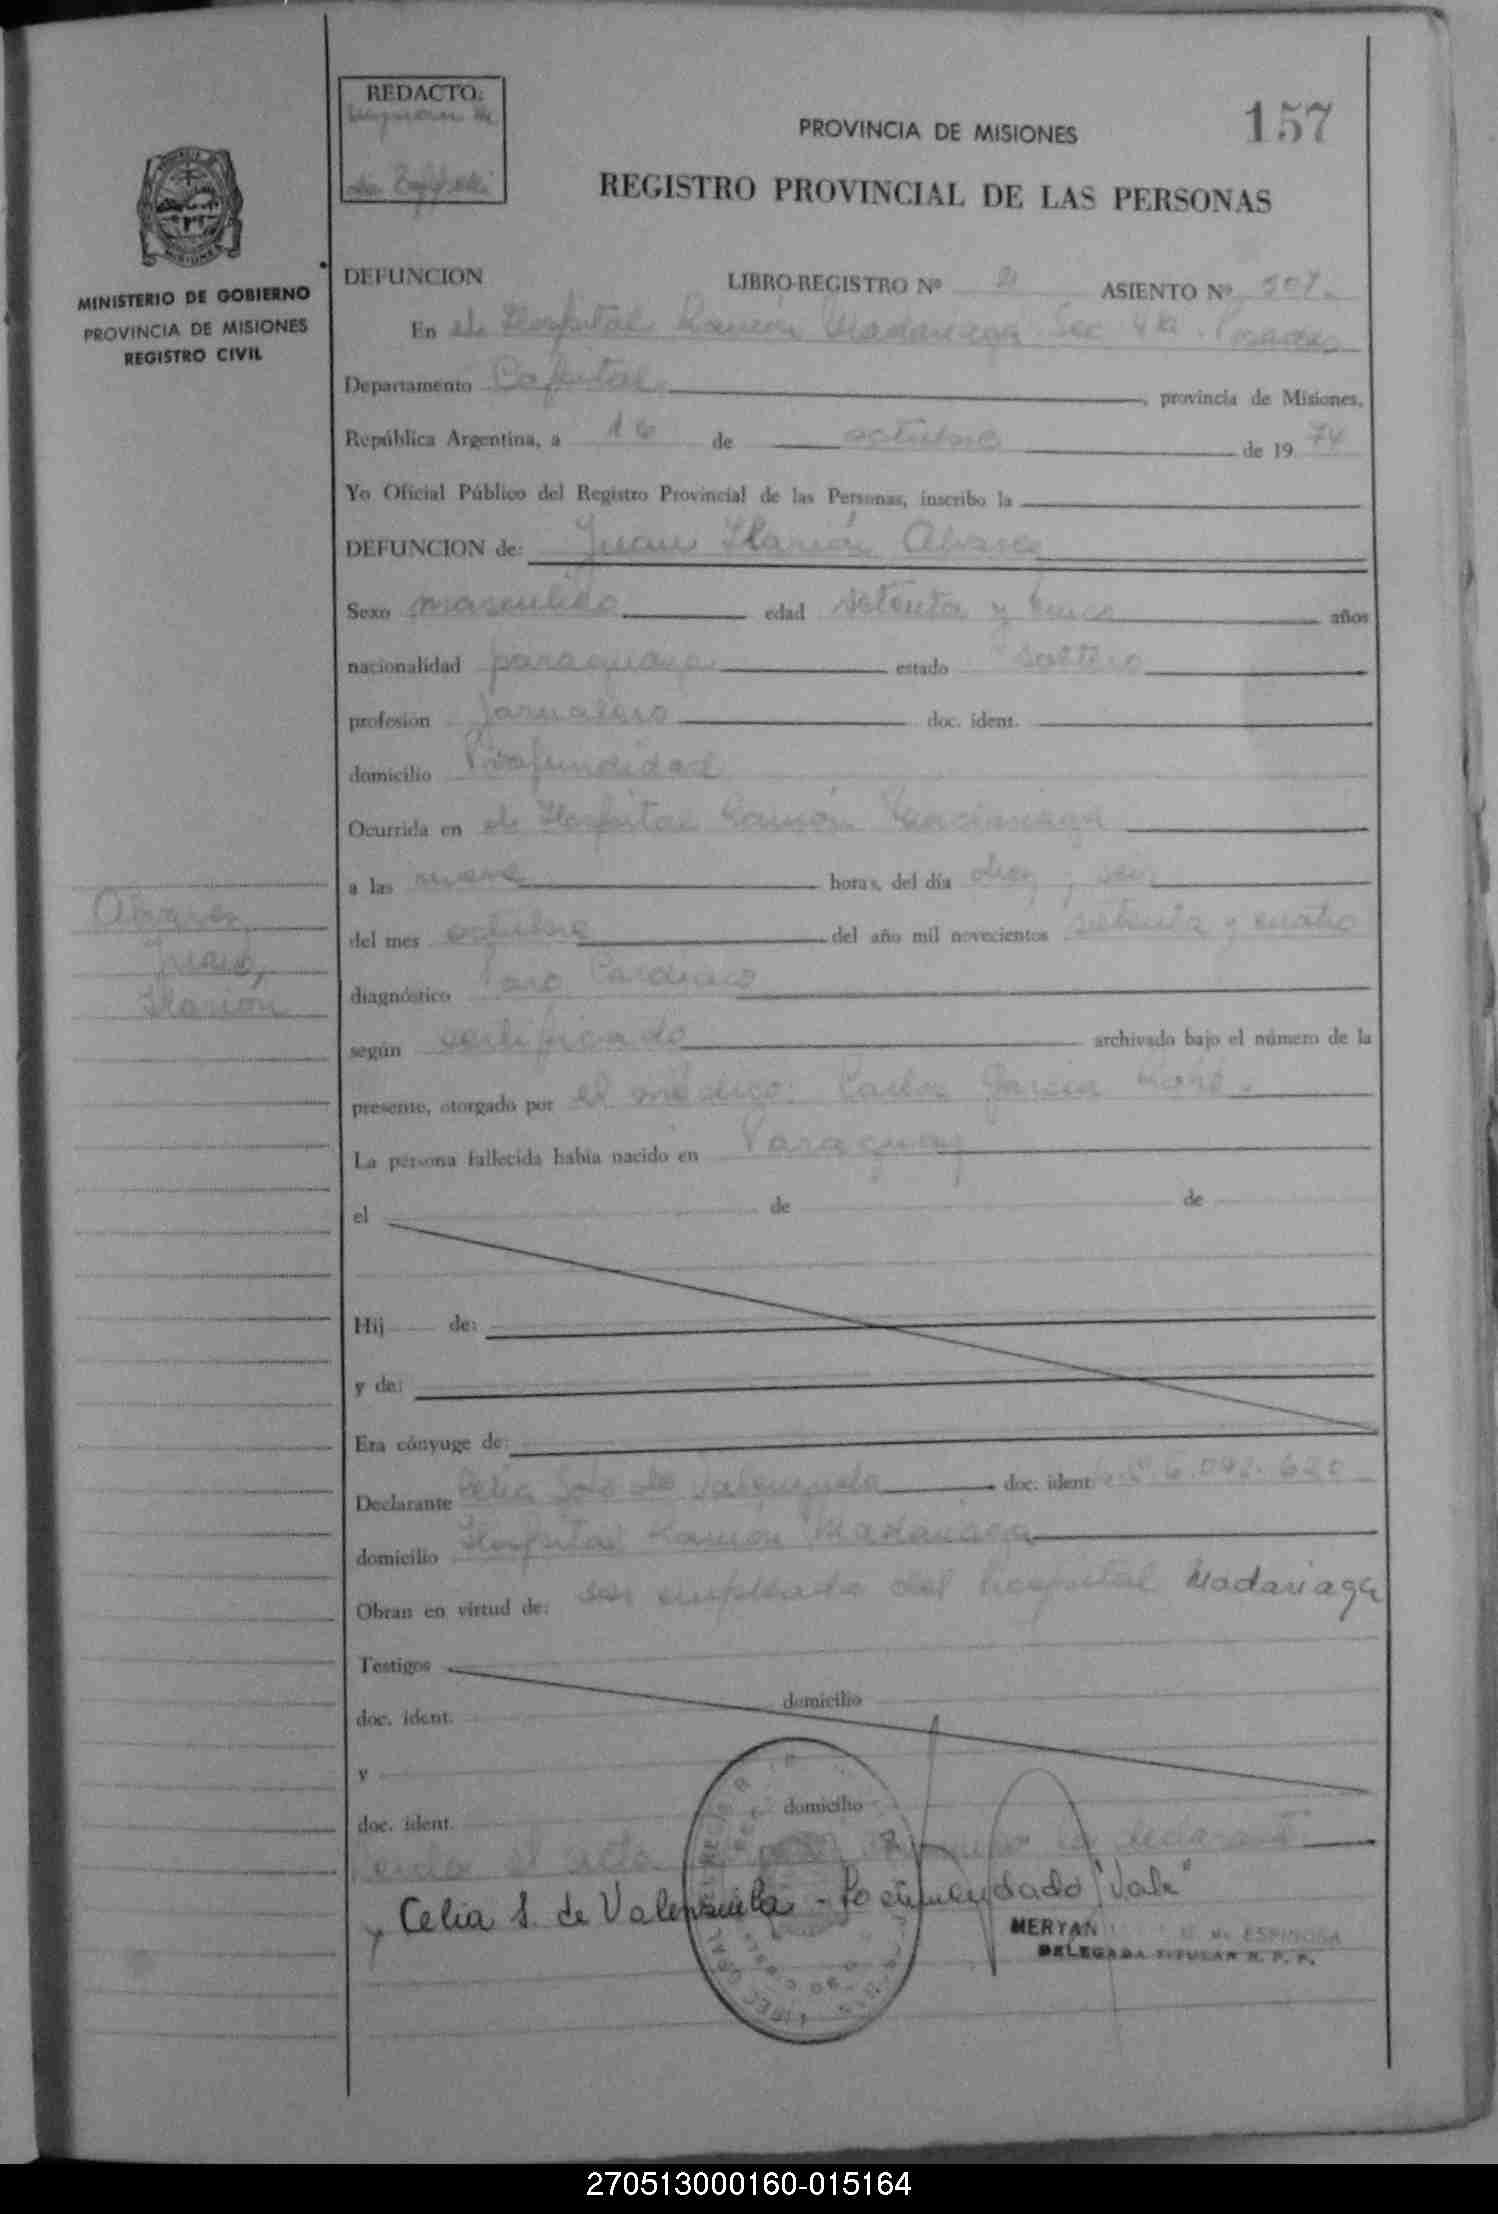 REDACTO:
PROVINCIA DE MISIONES
157
REGISTRO PROVINCIAL DE LAS PERSONAS
MINISTERIO DE GOBIERNO
PROVINCIA DE MISIONES
REGISTRO CIVIL
DEFUNCION LIBRO-REGISTRO Nº ASIENTO Nº
En el Hospital Ramón Madariaga Sec 4ta. Posadas
Departamento Capital, provincia de Misiones,
República Argentina, a 16 de octubre de 1974
Yo Oficial Público del Registro Provincial de las Personas, inscribo la
DEFUNCION de: Juan Ilarión Alvarez
Sexo masculino edad setenta y cinco años
nacionalidad paraguaya estado soltero
profesión jornalero doc. ident.
domicilio Profundidad
Ocurrida en el Hospital Ramón Madariaga
a las nueve horas, del día diez y seis
Alvarez,
Juan,
Ilarión
del mes octubre del año mil novecientos setenta y cuatro
diagnóstico Paro Cardíaco
según certificado archivado bajo el número de la
presente, otorgado por el médico: Carlos García
La persona fallecida había nacido en Paraguay
el de de
Hij de:
y de:
Era cónyuge de:
Declarante Celia Soto de Valenzuela doc. ident.
domicilio Hospital Ramón Madariaga
Obran en virtud de: ser empleada del hospital Madariaga
Testigos
domicilio
doc. ident.
y
domicilio
doc. ident.
el acta la declarante
Celia S. de Valenzuela - Lo enmendado "Vale"
MERYAN ESPINOSA
DELEGADA TITULAR R. P. P.
270513000160-015164